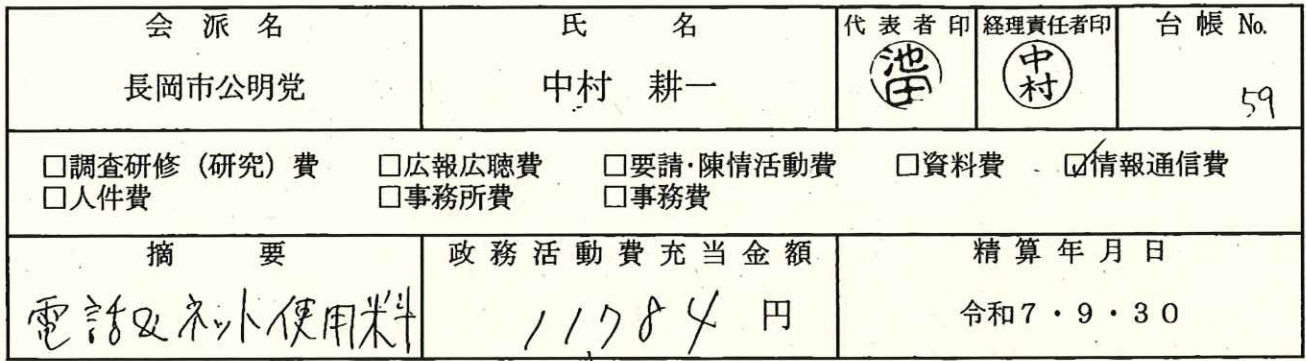 会派名 氏名 代表者印 経理責任者印 台帳 No.
長岡市公明党 中村 耕一 池田 中村 59
□調査研修（研究）費 □広報広聴費 □要請・陳情活動費 □資料費 ☑情報通信費
□人件費 □事務所費 □事務費
摘要 政務活動費充当金額 精算年月日
電話&ネット使用料 11784 円 令和7・9・30